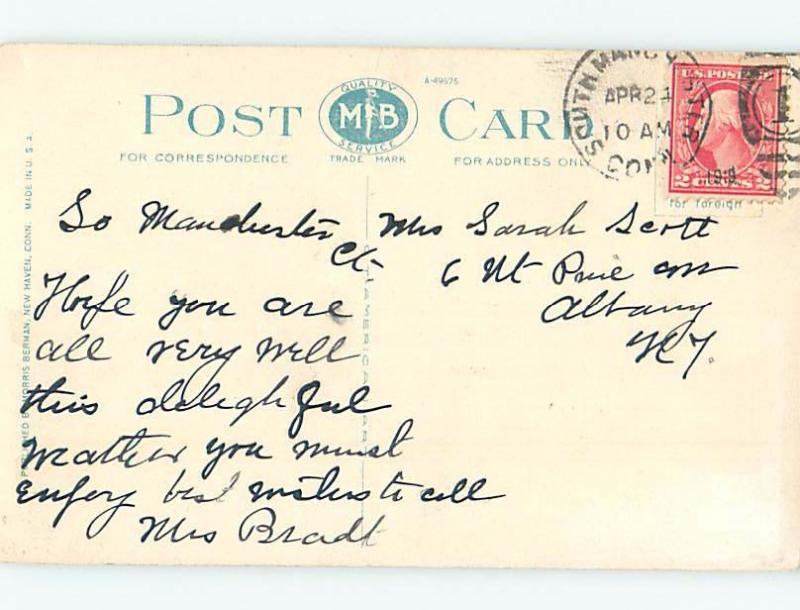 A-49575
QUALITY
MB
SERVICE
TRADE MARK
POST CARD
FOR CORRESPONDENCE
FOR ADDRESS ONLY
SOUTH MANCHESTER
APR 21
10 AM
CONN
U.S. POSTAGE
2 CENTS 2
for foreign
So Manchester
Ct-
Hope you are
all very well
this delighful
weather you must
enjoy best wishes to all
Mrs Bradt
Mrs Sarah Scott
6 Mt Pine
Albany
N.Y.
PUBLISHED BY MORRIS BERMAN, NEW HAVEN, CONN. MADE IN U.S.A.